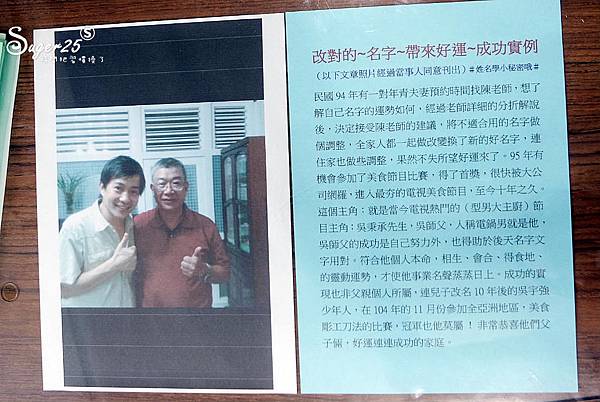 Sager25
改對的~名字~帶來好運~成功實例
（以下文章照片經過當事人同意刊出）#姓名學小秘密哦#
民國 94 年有一對年青夫妻預約時間找陳老師，想了
解自己名字的運勢如何，經過老師詳細的分折解說
後，決定接受陳老師的建議，將不適合用的名字做
個調整，全家人都一起做改變換了新的好名字，連
住家也做些調整。果然不失所望好運來了。95 年有
機會參加了美食節目比賽，得了首獎，很快被大公
司網羅，進入最夯的電視美食節目，至今十年之久。
這個主角；就是當今電視熱門的（型男大主廚）節
目主角；吳秉承先生，吳師父，人稱電鍋男就是他，
吳師父的成功是自己努力外，也得助於後天名字文
字用對。符合他個人本命，相生、會合、得食地、
的靈動運勢，才使他事業名聲蒸蒸日上。成功的實
現也非父親個人所屬，連兒子改名 10 年後的吳宇強
少年人，在 104 年的 11 月份參加全亞洲地區，美食
彫工刀法的比賽，冠軍也他莫屬！ 非常恭喜他們父
子倆，好運連連成功的家庭。